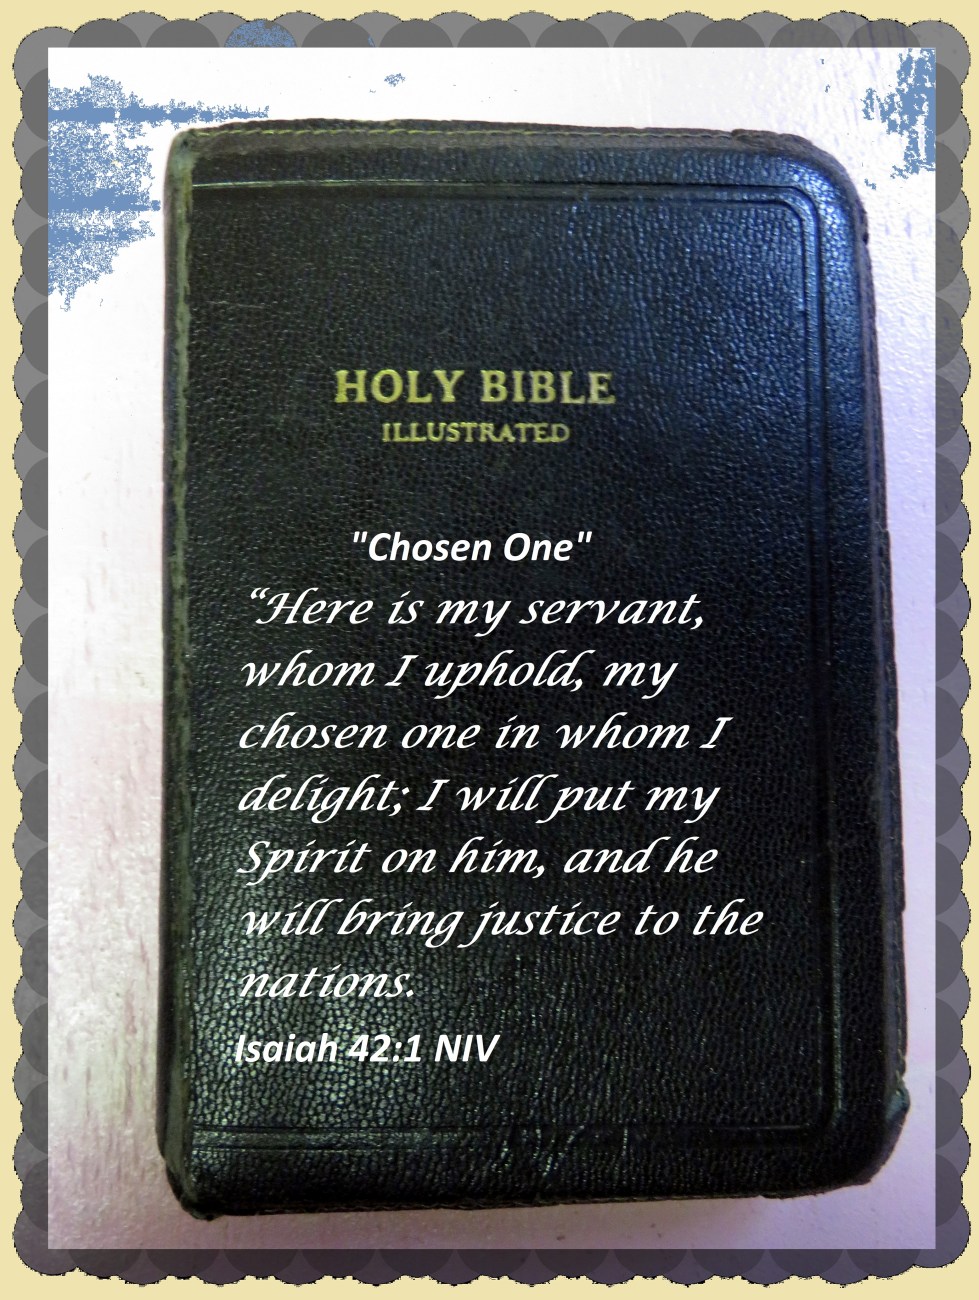 HOLY BIBLE
ILLUSTRATED
"Chosen One"
“Here is my servant,
whom I uphold, my
chosen one in whom I
delight; I will put my
Spirit on him, and he
will bring justice to the
nations.
Isaiah 42:1 NIV